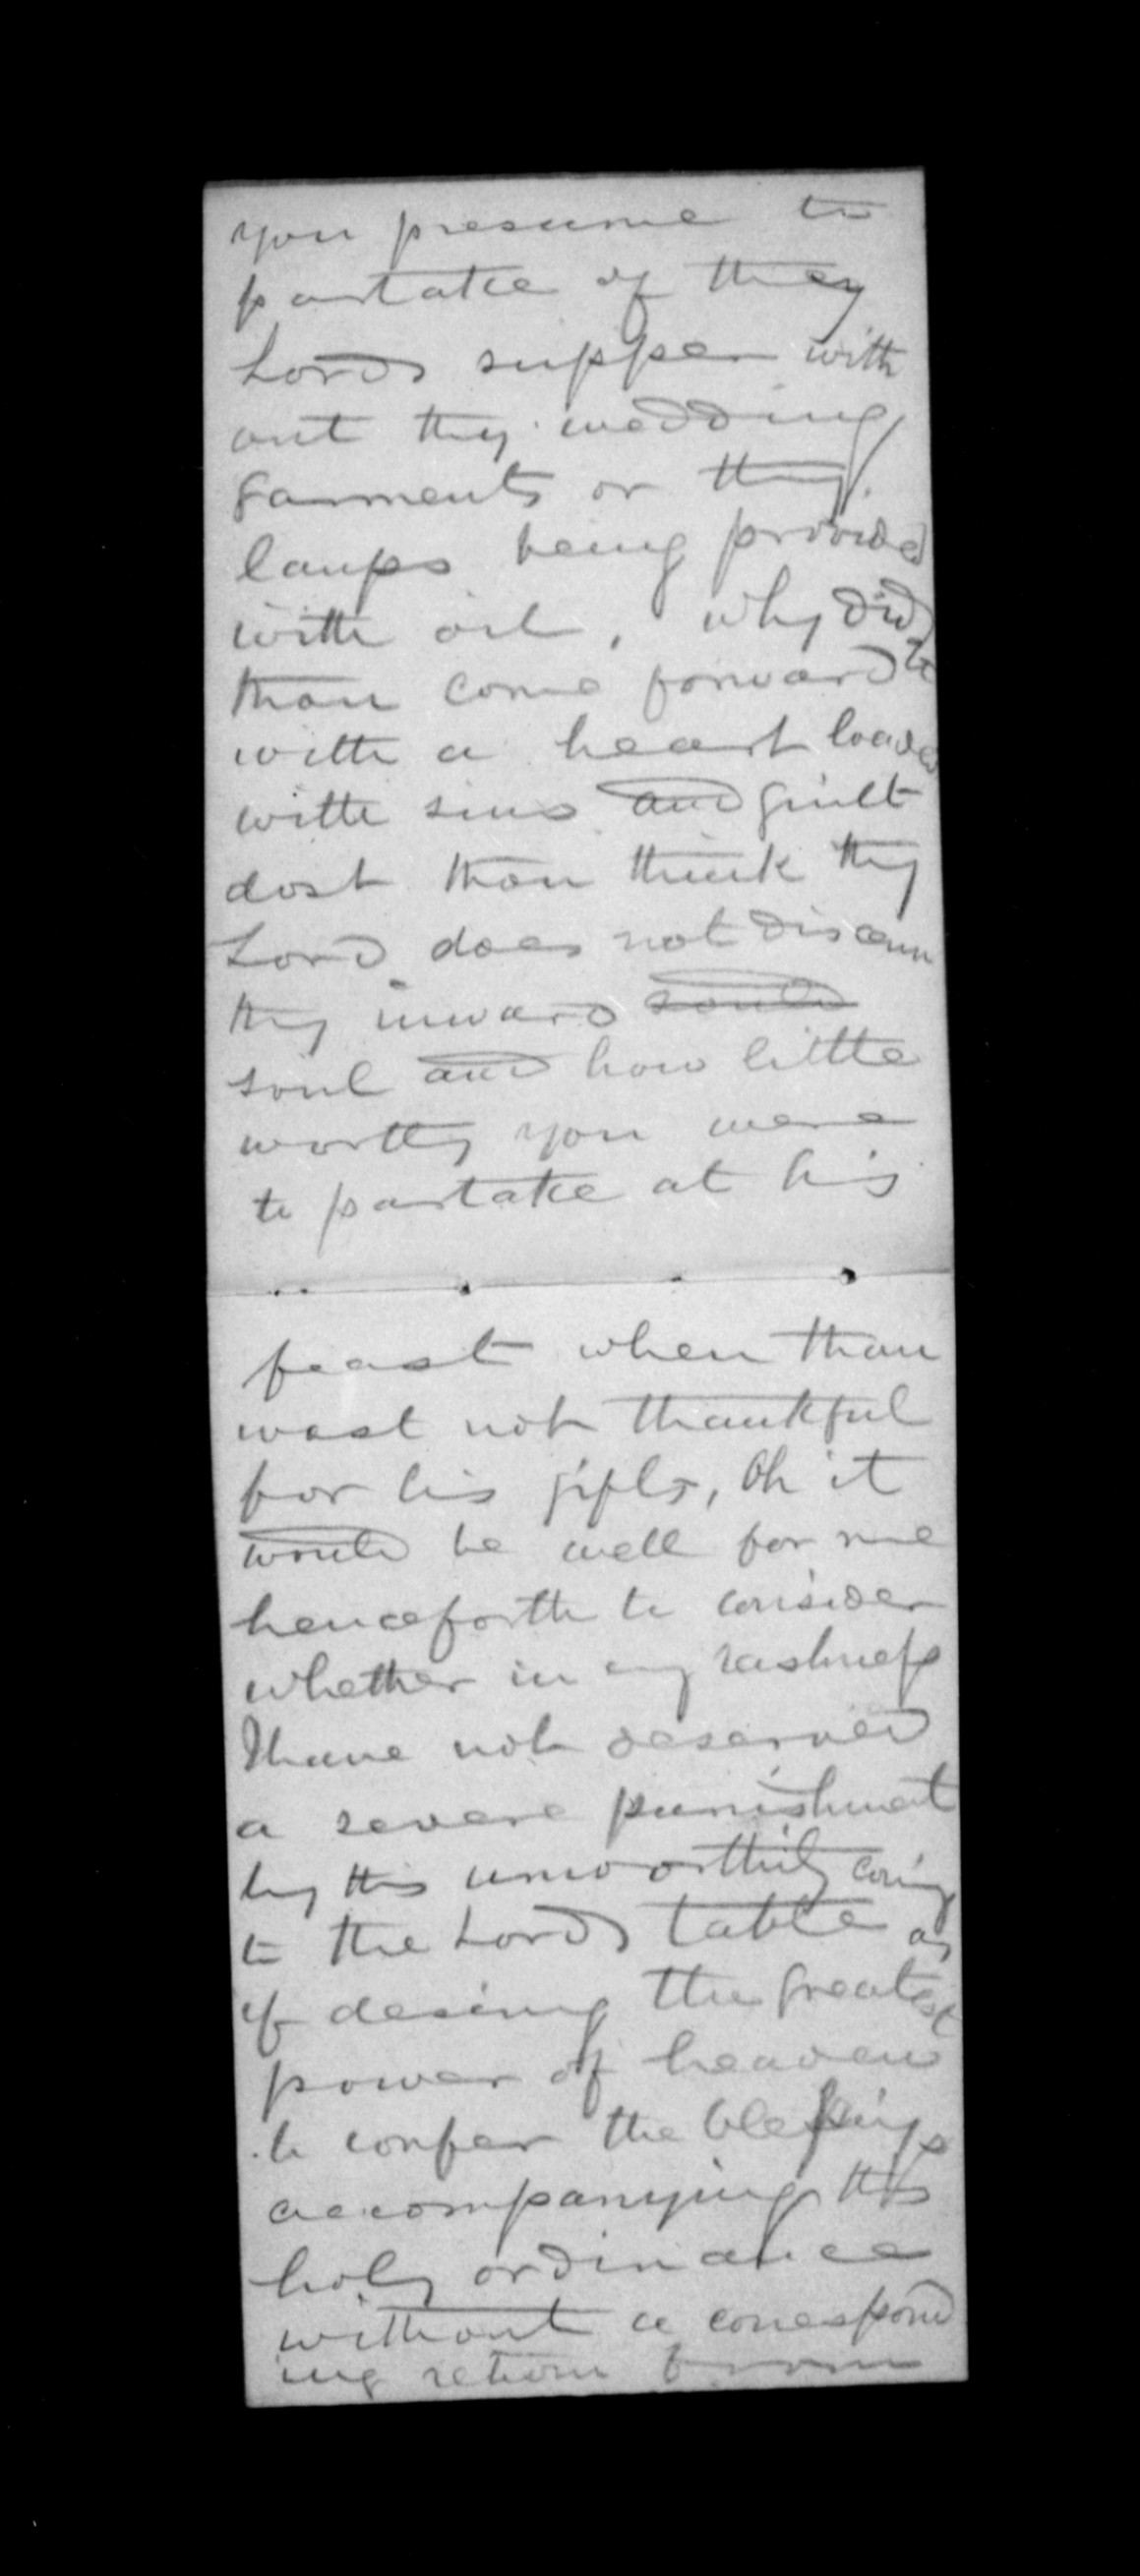 you presume to
partake of they
Lords supper with
out thy wedding
garments or thy
lamps being provided
with oil, why did
thou come forward to
with a heart loaded
with sins and guilt
dost thou think thy
Lord does not discern
thy inward
soul and how little
worthy you were
to partake at his
feast when thou
wast not thankful
for his gifts, Oh it
would be well for me
henceforth to consider
whether in my rashness
I have not deserved
a severe punishment
by this unworthily coming
to the Lords table as
if desiring the greatest
power of heaven
to confer the blessings
accompanying this
holy ordinance
without a correspond
ing return from